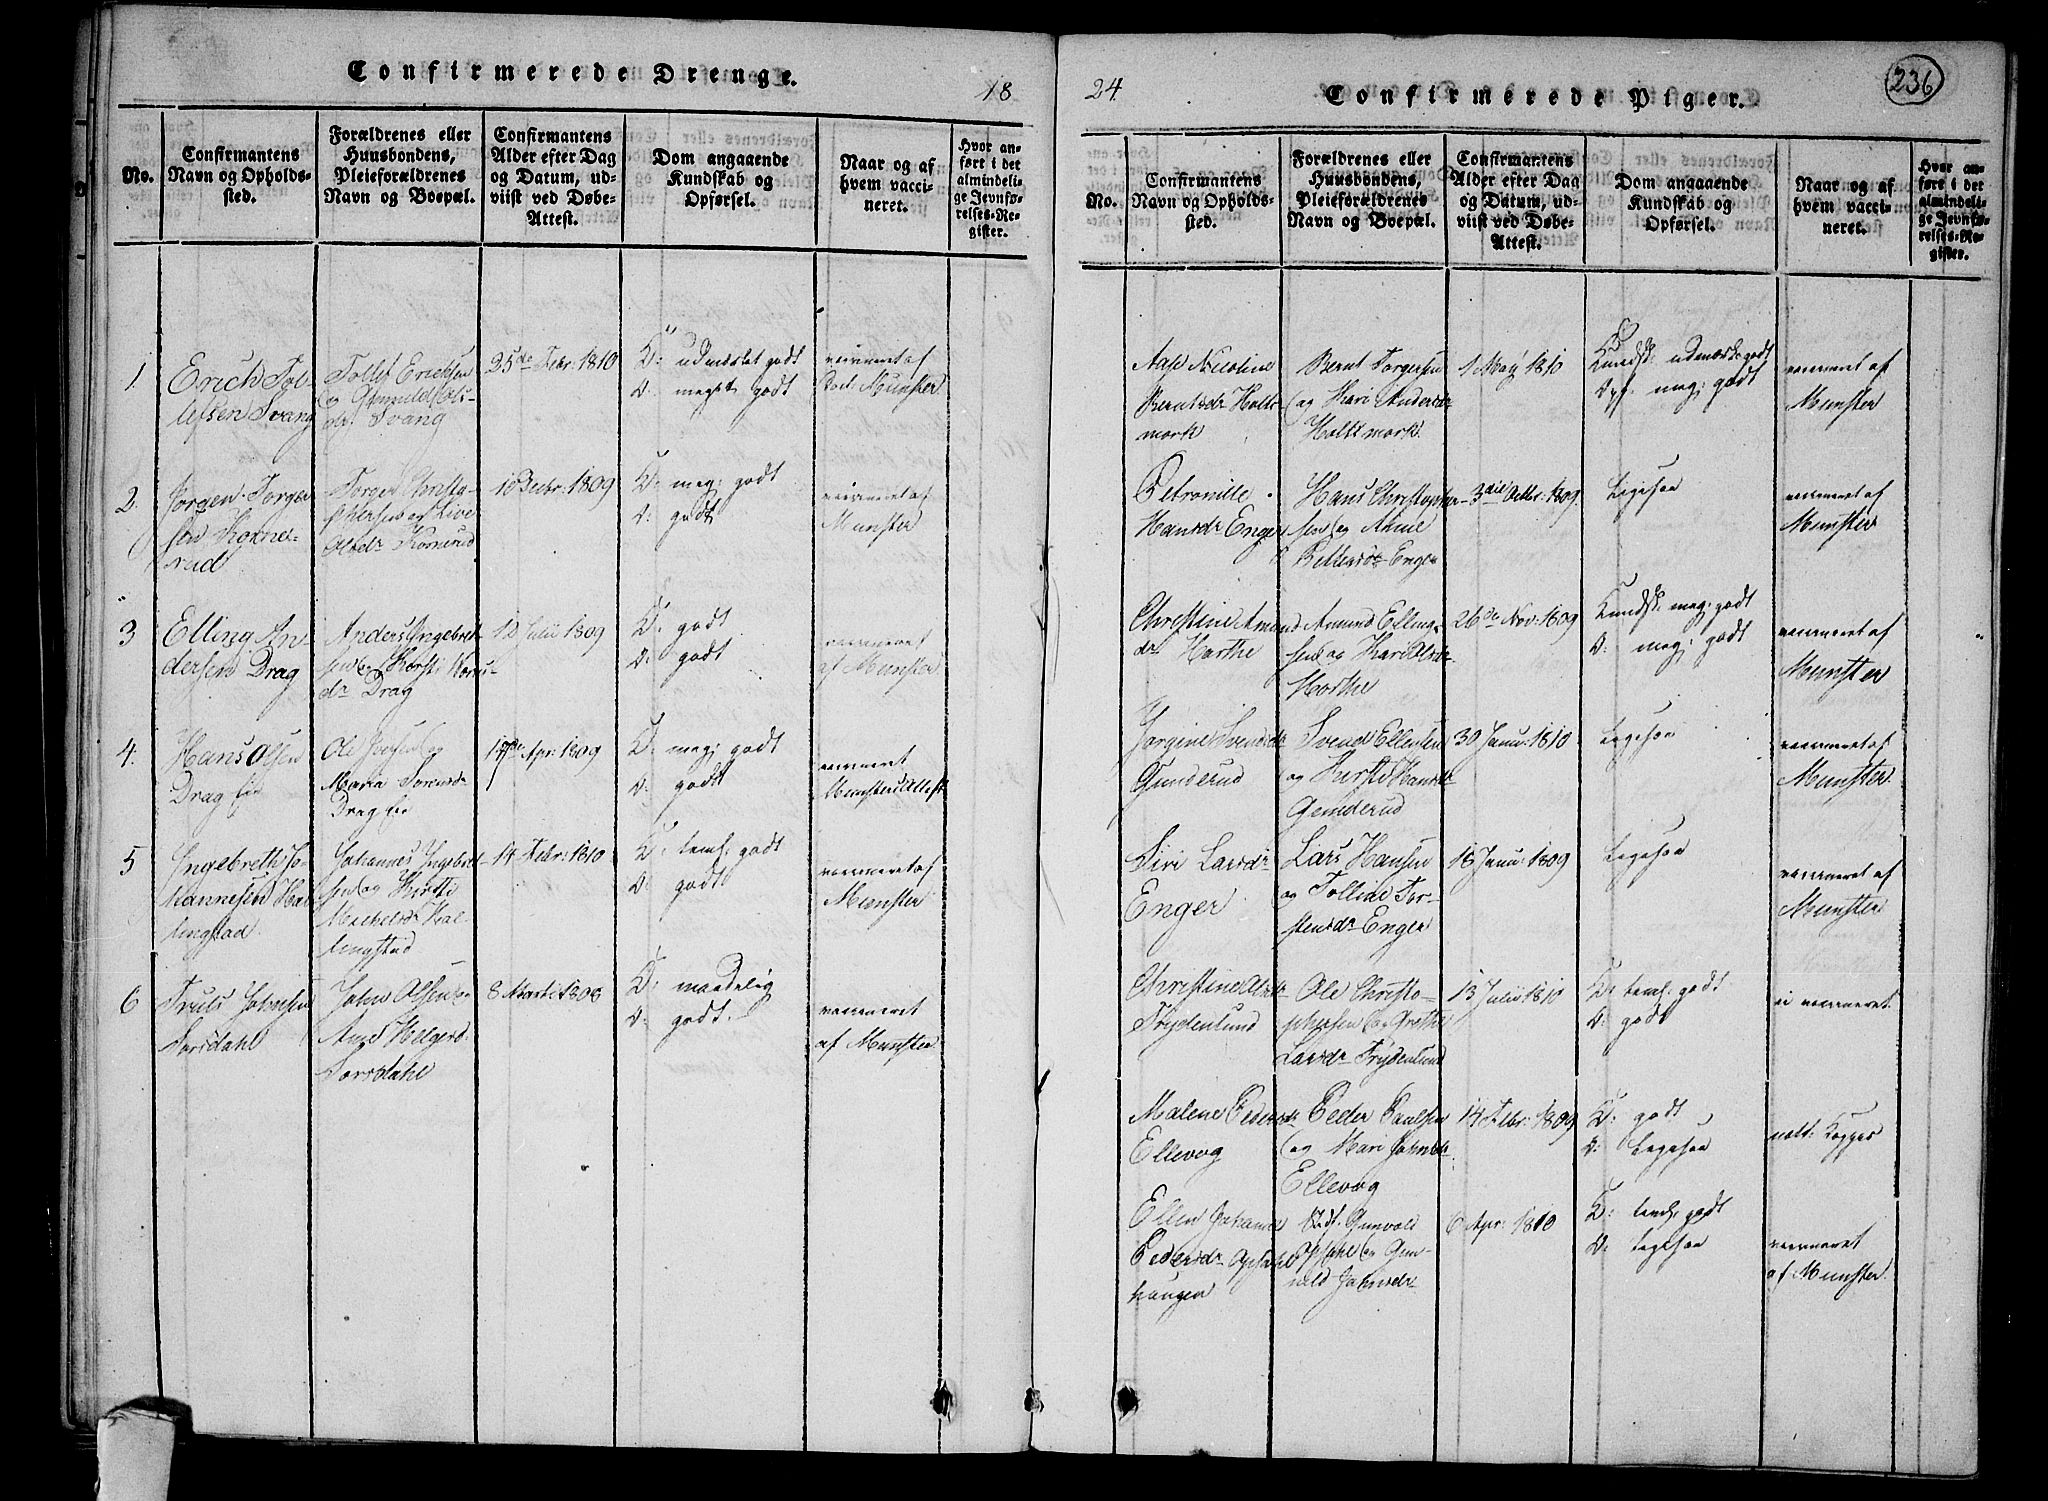 Confirmerede Drenge.
18
No.
Confirmantens
Navn og Opholds-
sted.
Forældrenes eller
Huusbondens,
Pleieforældrenes
Navn og Boepæl.
Confirmantens
Alder efter Dag
og Datum, ud-
viist ved Døbe-
Attest.
Dom angaaende
Kundskab og
Opførsel.
Naar og af
hvem vacci-
neret.
Hvor an-
ført i det
almindeli-
ge Jevnfø-
relses-Re-
gister.
1.
Erich Tol-
lefsen Svang
Tollef Erichsen
og Gunnild Ols-
dr Svang
25de Febr. 1810
K: udmærket godt
O: meget godt
vaccineret af
Munster
2.
Jørgen Torger
sen Korne-
rud
Torger Christo-
phersen og Live
Olsdr Kornrud
1809
K: meg: godt
O: godt
vaccineret af
Munster
3
Elling An-
dersen Drag
Anders Ingebret
sen og Kersti
dr Drag
12 Julii 1809
K: godt
O: godt
vaccineret
af Munster
4.
Hans Olsen
Drag eie
Ole Iversen og
Maria Sørensdr
Drag eie
Apr: 1809
K: meg: godt
O: godt
vaccineret
Munsters Attest
5
Ingebreth Jo-
hannesen Hal
lingstad
Johannes Ingebret
sen og Kirstie
Michelsdr Hal
lingstad
14 Febr: 1810
K: teml: godt
O: godt
vaccineret af
Munster
6
Truls Johnsen
Sorsdahl
John Olsen og
Anne Helgersd:
Sorsdahl
8 Marti 1808
K: maadelig
O: godt.
vaccineret
af Munster
24.
Confirmerede Piger.
236
No.
Confirmantens
Navn og Opholds-
sted.
Forældrenes eller
Huusbondens,
Pleieforældrenes
Navn og Boepæl.
Confirmantens
Alder efter Dag
og Datum, ud-
viist ved Døbe-
Attest.
Dom angaaende
Kundskab og
Opførsel.
Naar og af
hvem vacci-
neret.
Hvor an-
ført i det
almindeli-
ge Jevnfø-
relses-Re-
gister.
Aase Nicoline
Berntsdr Holts
mark
Bernt Torgersen
og Kari Andersdr
Holtsmark
1 May 1810
Kundsk: udmærk: godt
Opf. meg: godt
vaccineret af
Munster
Petronille
Hansdr Enger
Hans Christopher
sen og Anne
Pettersdr Enger
3die Octbr: 1809
Ligesaa
vaccineret af
Munster
Christine Amund
dr Horthe
Amund Elling-
sen og Kari Olsdr
Horthe
26de Nov: 1809
Kundsk: meg: godt
O: meg: godt
vaccineret af
Munster
Jorgine Svendsdr
Gunderud
Svend Ellensen
og Kirsti Hansdr
Gunderud
30 Janu: 1810
Ligesaa
vaccineret af
Munster
Siri Larsdr
Enger
Lars Hansen
og Tolline Tor-
stensdr Enger
18 Janu: 1809
Ligesaa
vaccineret af
Munster
Christine Olsdr
Frydenlund
Ole Christo-
phersen og Grethe
Larsdr Frydenlund
13 Julii 1810
K: teml: godt
O: godt
ei vaccineret.
Malene Pedersdr
Ellevog
Peder Paulsen
og Mari Johnsdr
Ellevog
14 Febr: 1809
K: godt
O: Ligesaa
natt: Kopper
Ellen Johanne
Pedersdr Opsahl
haugen
Gunvold
Opsahl og Gun-
nild Johnsdr
6 Apr: 1810
K: teml: godt
O: Ligesaa
vaccineret
af Munster.